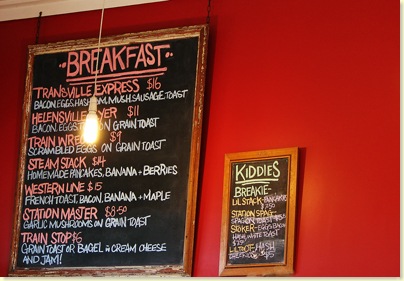 BREAKFAST
TRAINSVILLE EXPRESS $16
BACON, EGGS, HASH, TOM, MUSH, SAUSAGE, TOAST
HELENSVILLE FLYER $11
BACON, EGGS ON GRAIN TOAST
TRAIN WRECK $9
SCRAMBLED EGGS ON GRAIN TOAST
STEAM STACK $14
HOMEMADE PANCAKES, BANANA + BERRIES
WESTERN LINE $15
FRENCH TOAST, BACON, BANANA + MAPLE
STATION MASTER $8.50
GARLIC MUSHROOMS ON GRAIN TOAST
TRAIN STOP $6
GRAIN TOAST OR BAGEL CREAM CHEESE
AND JAM!
KIDDIES
BREAKIE-
LIL STACK- PANCAKE
STATION SPAG-
SPAG ON TOAST
STOKER- EGGS BACON
HASH, WHITE TOAST
LIL TOOT- HASH